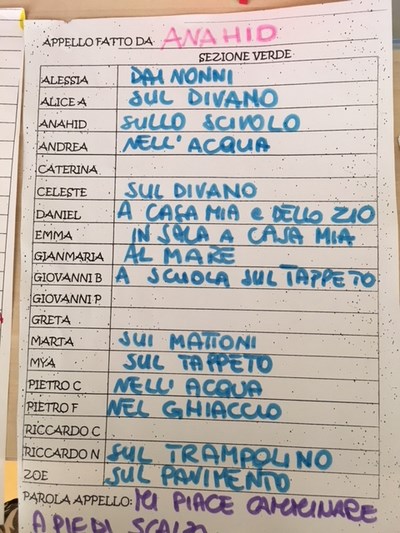 APPELLO FATTO DA ANAHID
SEZIONE VERDE
ALESSIA DAI NONNI
ALICE A SUL DIVANO
ANAHID SULLO SCIVOLO
ANDREA NELL'ACQUA
CATERINA
CELESTE SUL DIVANO
DANIEL A CASA MIA e DELLO ZIO
EMMA IN SALA A CASA MIA
GIANMARIA AL MARE
GIOVANNI B A SCUOLA SUL TAPPETO
GIOVANNI P.
GRETA
MARTA SUI MATTONI
MYA SUL TAPPETO
PIETRO C NELL'ACQUA
PIETRO F NEL GHIACCIO
RICCARDO C
RICCARDO N SUL TRAMPOLINO
ZOE SUL PAVIMENTO
PAROLA APPELLO: MI PIACE CAMMINARE
A PIEDI SCALZI